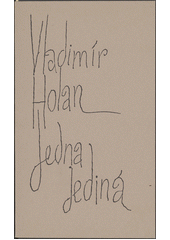 Vladimír
Holan
Jedna
Jediná